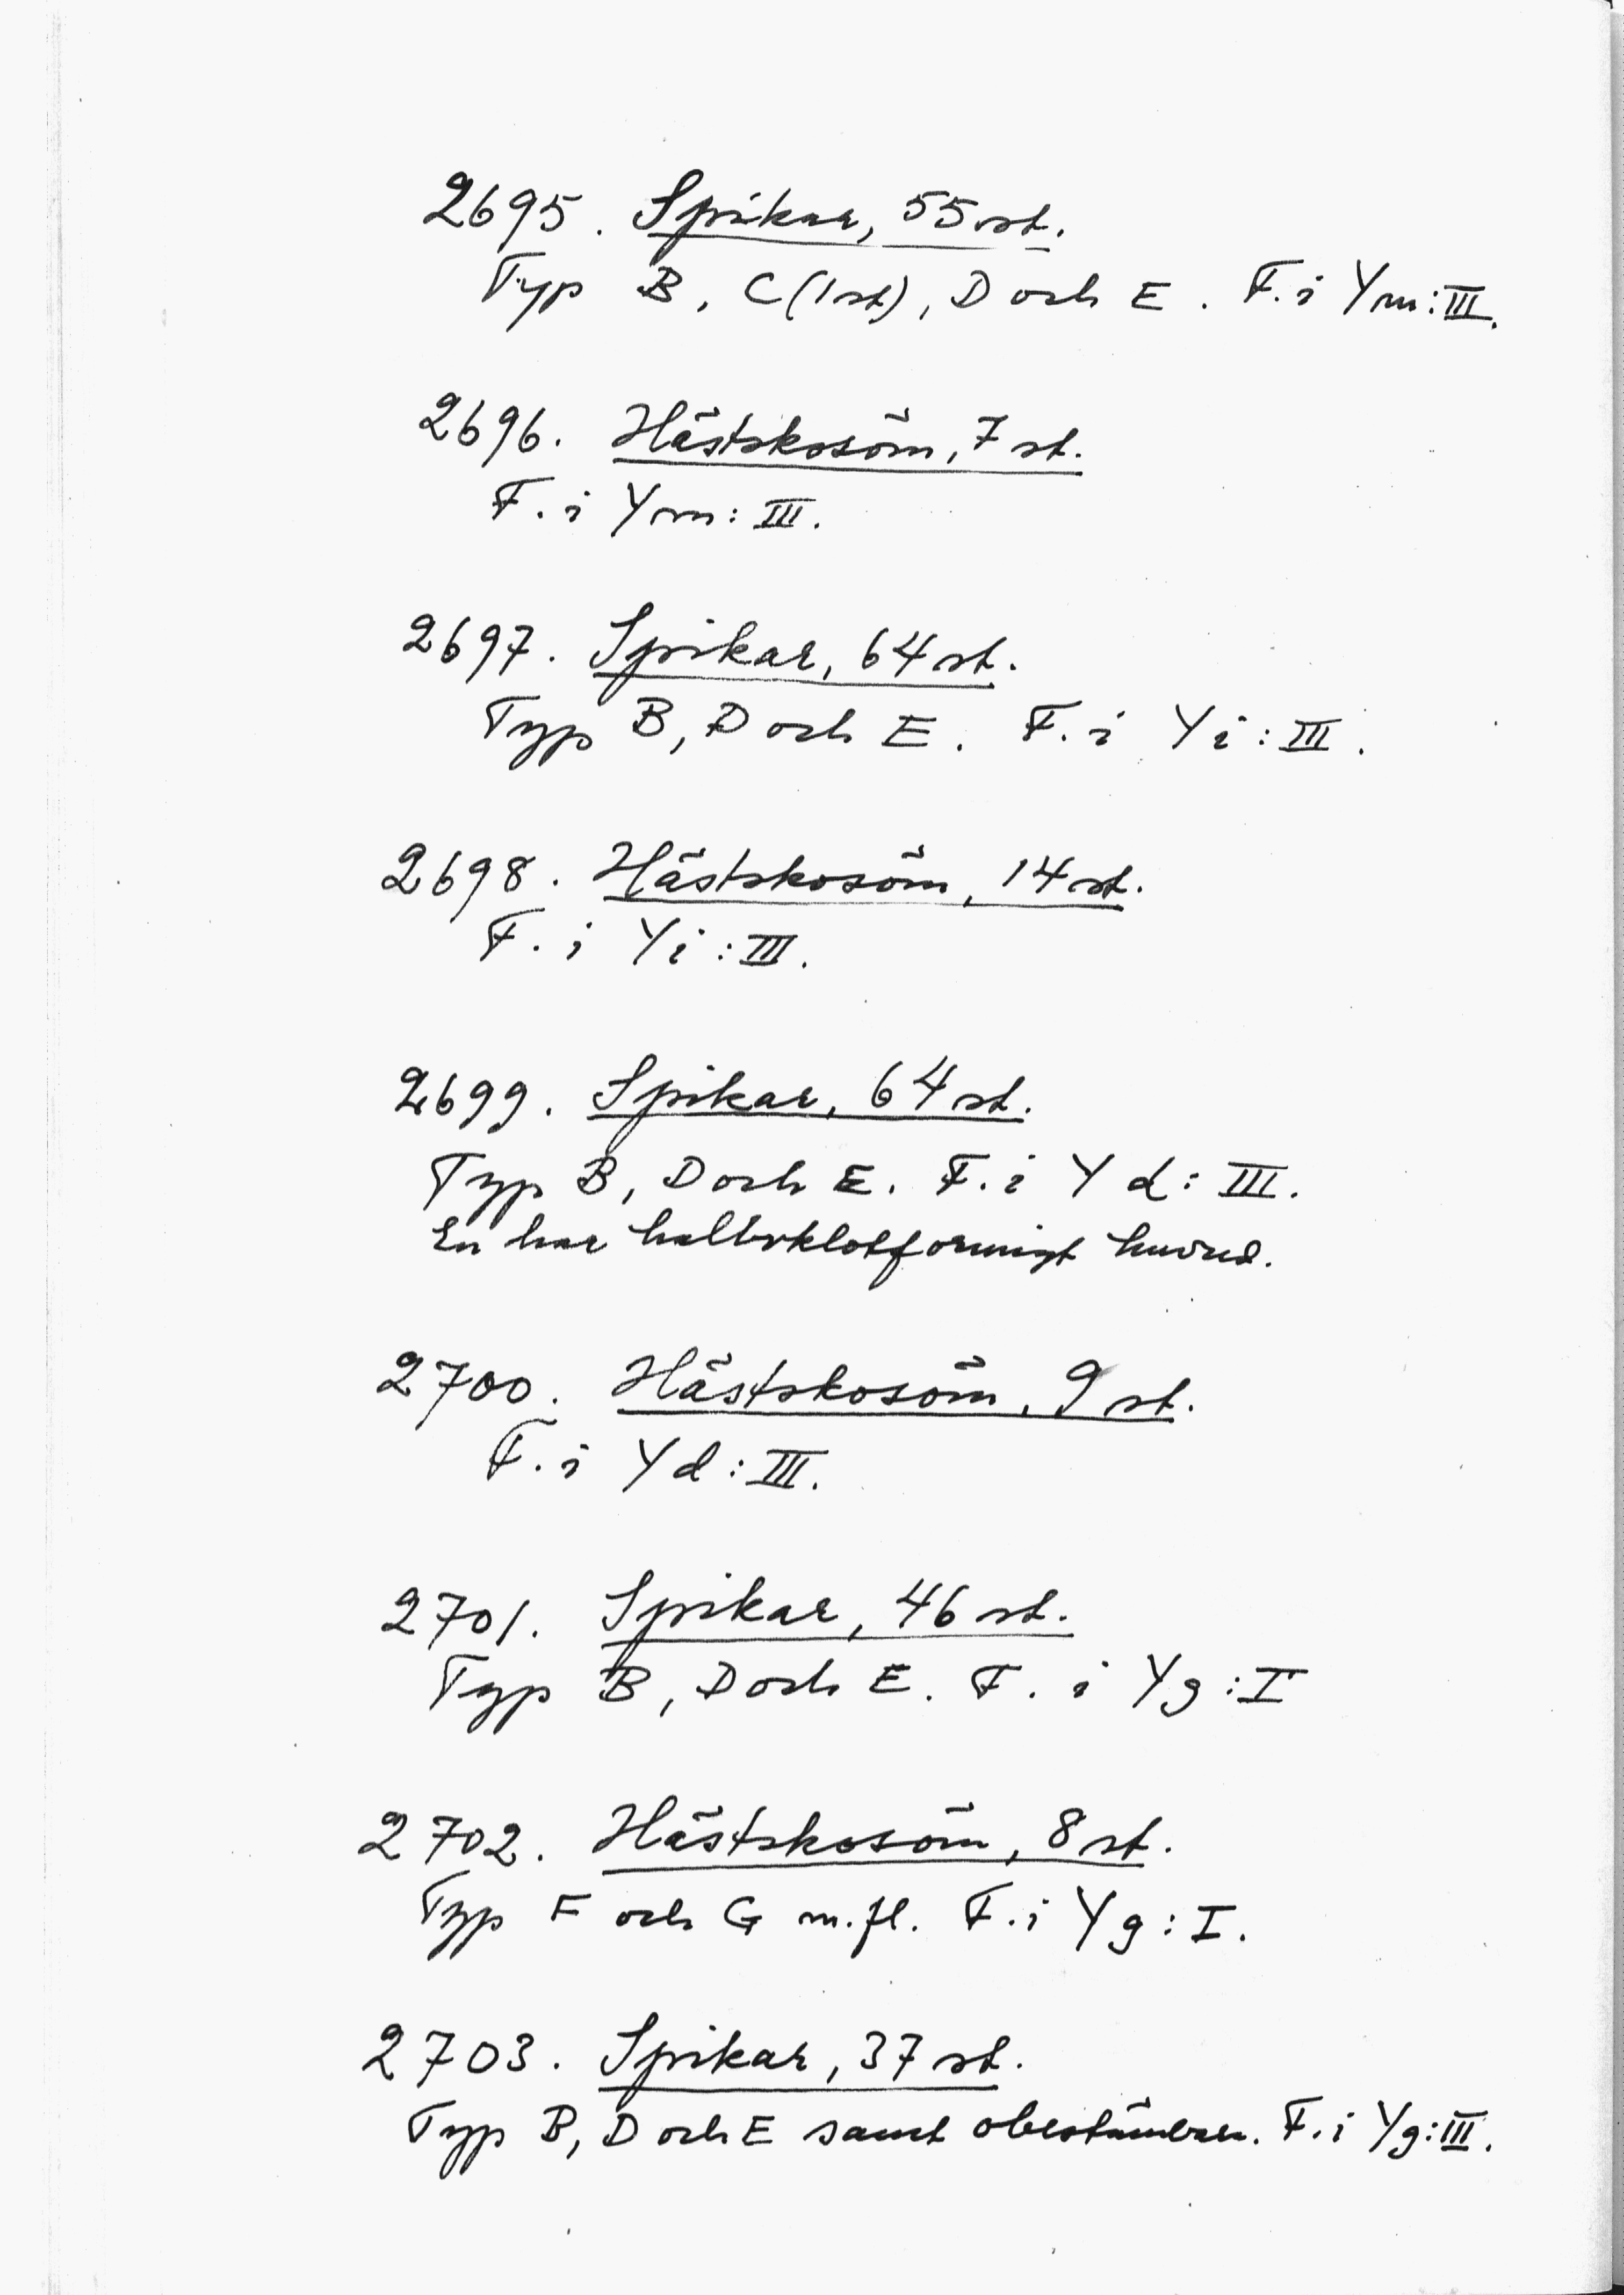 2695. Spikar, 55 st.
Typ B, C (1 st), D och E. F. i Ym: III.
2696. Hästskosöm, 7 st.
F. i Ym: III.
2697. Spikar, 64 st.
Typ B, D och E. F. i Yi: III.
2698. Hästskosöm, 14 st.
F. i Yi: III.
2699. Spikar, 64 st.
Typ B, D och E. F. i Yd: III.
En har halvklotformigt huvud.
2700. Hästskosöm, 9 st.
F. i Yd: III.
2701. Spikar, 46 st.
Typ B, D och E. F. i Yg: I
2702. Hästskosöm, 8 st.
Typ F och G m.fl. F. i Yg: I.
2703. Spikar, 37 st.
Typ B, D och E samt obestämbar. F. i Yg: III.